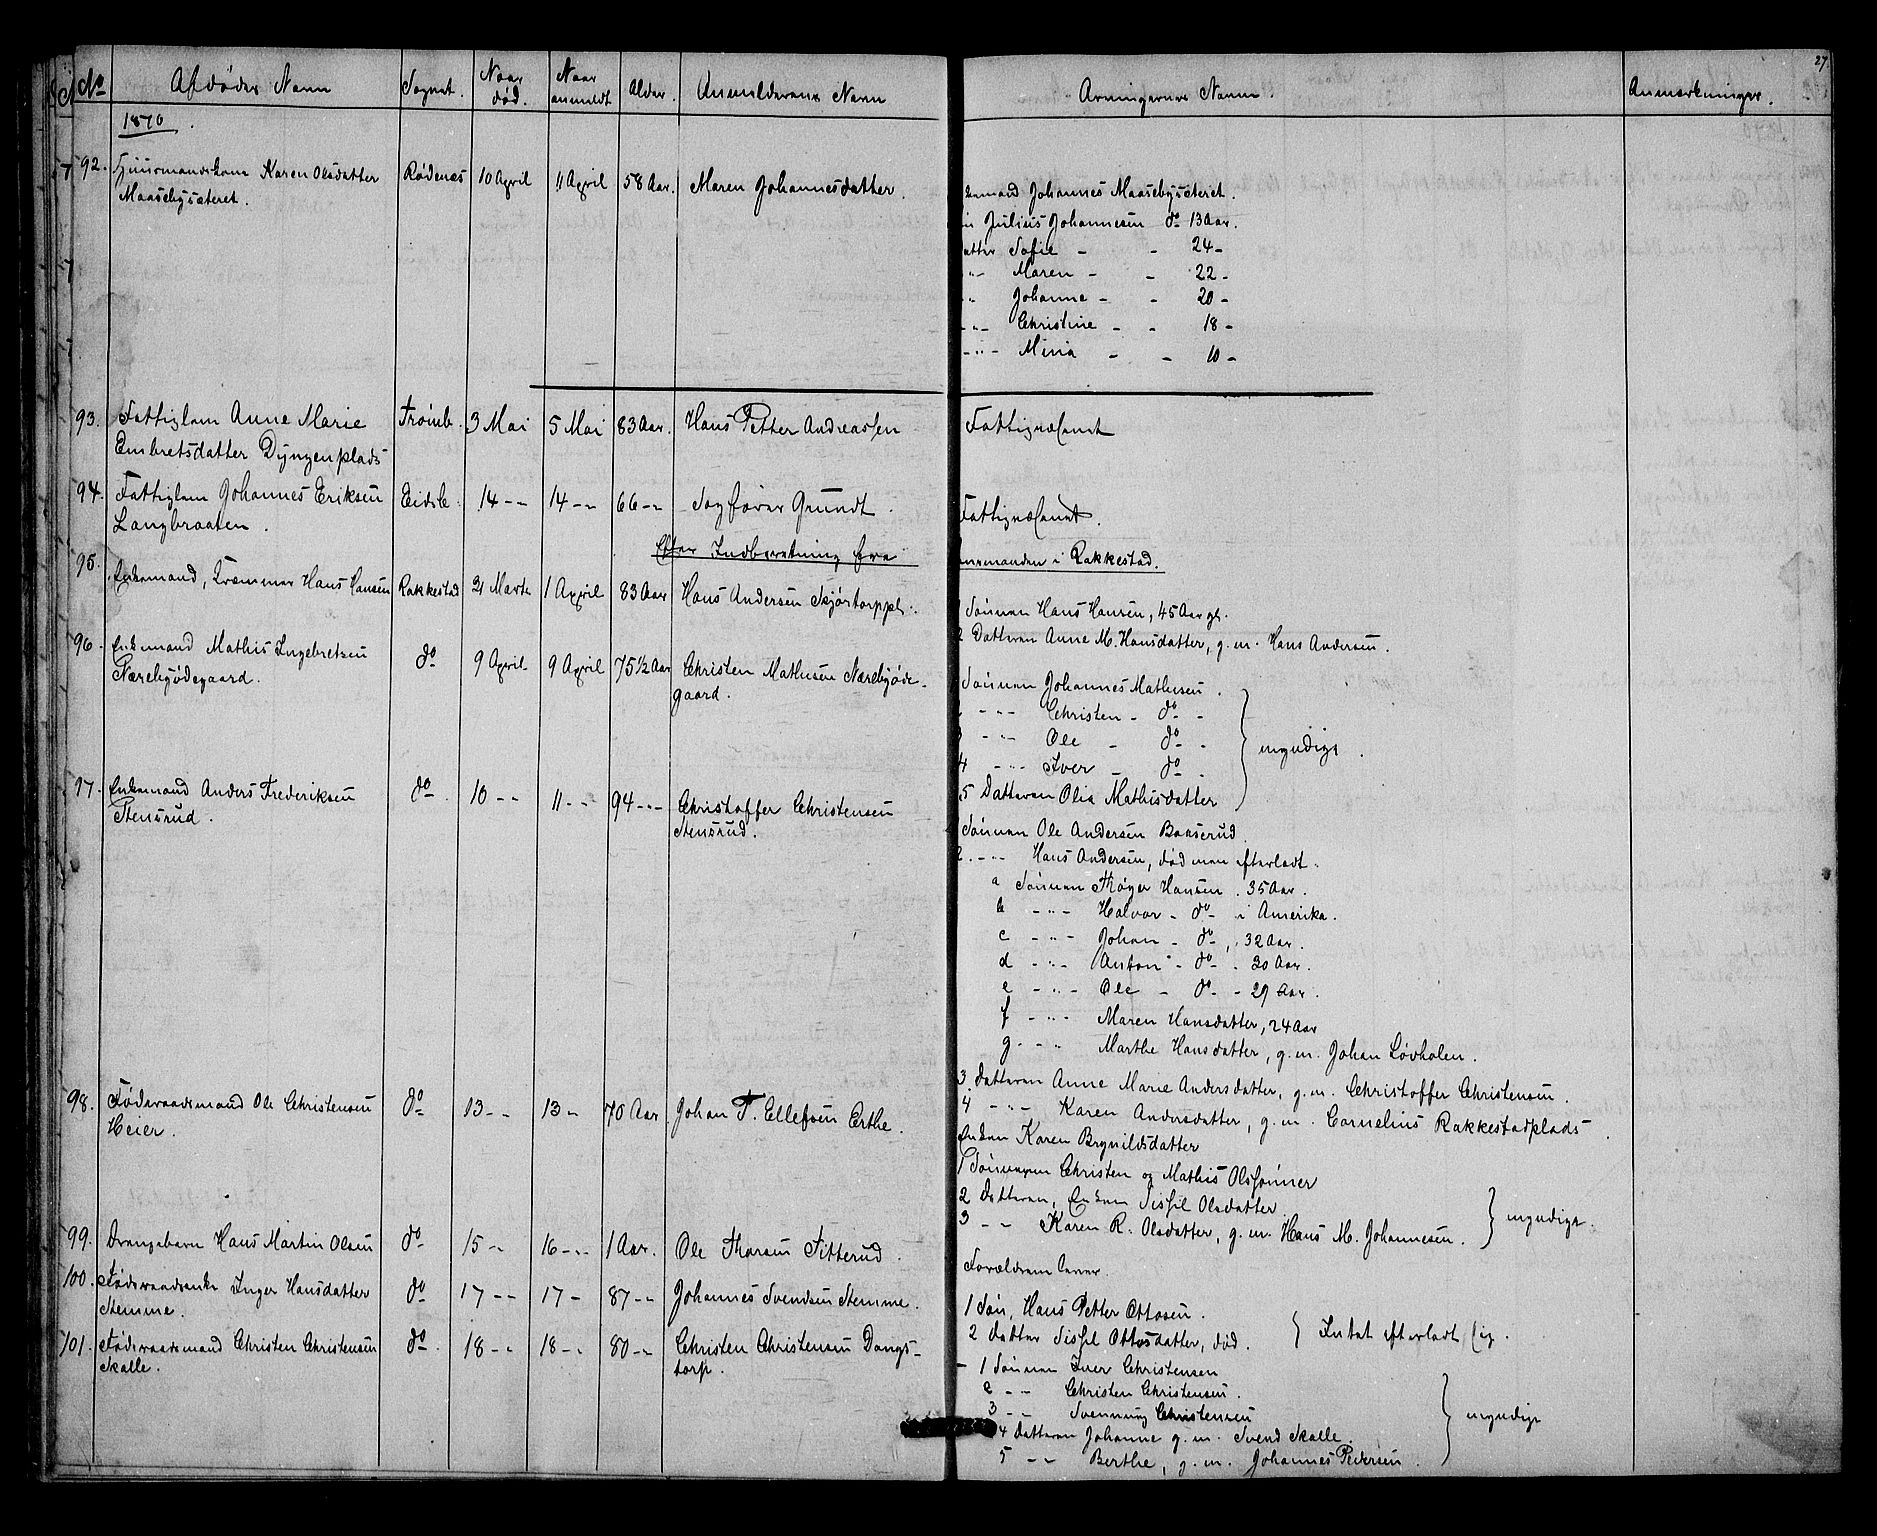 27.
No Afdødes Navn Sognet. Naar død. Naar anmeldt Alder. Anmelderens Navn Arvingernes Navn. Anmærkninger.
1870.
92. Huusmandskone Karen Olsdatter Rødenes 10 April 11 April 58 Aar. Maren Johannesdatter
Maasebysæteret.
Enkemand Johannes Maasebysæteret.
Julius Johannesen do 13 Aar.
Datter Sofie - - 24 -
-"- Maren - - 22 -
-"- Johanne - - 20 -
-"- Christine - - 18 -
-"- Mina - - 10 -
93. Fattiglem Anne Marie Trømb. 3 Mai 5 Mai 83 Aar. Hans Petter Andreassen Fattigvæsenet
Embretsdatter Dyngenplads
94. Fattiglem Johannes Eriksen Eidsb. 14 -"- 14 -"- 66 -"- Sagfører Grundt. Fattigvæsenet.
Langbraaten.
Efter Indberetning fra Lensmanden i Rakkestad.
95. Enkemand, Kræmmer Hans Hansen Rakkestad 21 Marts 1 April 83 Aar Hans Andersen Skjørtorppl.
1 Sønnen Hans Hansen, 45 Aar gl.
2 Datteren Anne M. Hansdatter, g. m. Hans Andersen.
96. Enkemand Mathis Ingebretsen do 9 April 9 April 75½ Aar Christen Mathisen Nærebyøde-
Nærebyødegaard. gaard.
Sønnen Johannes Mathisen.
-"- Christen - do -
-"- Ole - do -
4 -"- Iver - do -
5 Datteren Olia Mathisdatter
} myndige.
97. Enkemand Anders Frederiksen do 10 -"- 11 -"- 94 -"- Christoffer Christensen
Stensrud. Stensrud.
Sønnen Ole Andersen Baaserud
2. -"- Hans Andersen, død men efterladt.
a Sønnen Thøger Hansen. 35 Aar.
b -"- Halvor - do - i Amerika.
c -"- Johan - do -, 32 Aar.
d -"- Anton - do - 30 Aar.
e -"- Ole - do - 29 Aar.
f -"- Maren Hansdatter, 24 Aar
g -"- Marthe Hansdatter, g. m. Johan Løvholen.
3. Datteren Anne Marie Andersdatter, g. m. Christoffer Christensen.
4 -"- Karen Andersdatter, g. m. Cornelius Rakkestadplads.
98. Føderaadsmand Ole Christensen do 13 -"- 13 - 70 Aar. Johan F. Ellefsen Erthe.
Heier.
Enken Karen Brynildsdatter
1 Sønnerne Christen og Mathis Olssønner
2 Datteren, Enken Sissil Olsdatter
3 -"- Karen R. Olsdatter, g. m. Hans M. Johannesen.
} myndige.
99. Drengebarn Hans Martin Olsen do 15 -"- 16 -"- 1 Aar. Ole Thorsen Fitterud. Forældrene lever.
100. Føderaadsenke Inger Hansdatter do 17 -"- 17 - 87 -"- Johannes Svendsen Stemme.
Stemme.
1 Søn, Hans Petter Ottosen.
2 Datter Sissil Ottosdatter, død.
} Intet efterladt sig.
101. Føderaadsmand Christen Christensen do 18 -"- 18 -"- 80 -"- Christen Christensen Dangs-
Skalle. torp.
1 Sønnen Iver Christensen
2 -"- Christen Christensen.
3 -"- Svennung Christensen
4 Datteren Johanne g. m. Svend Skalle.
5 -"- Berthe, g. m. Johannes Pedersen.
} myndige